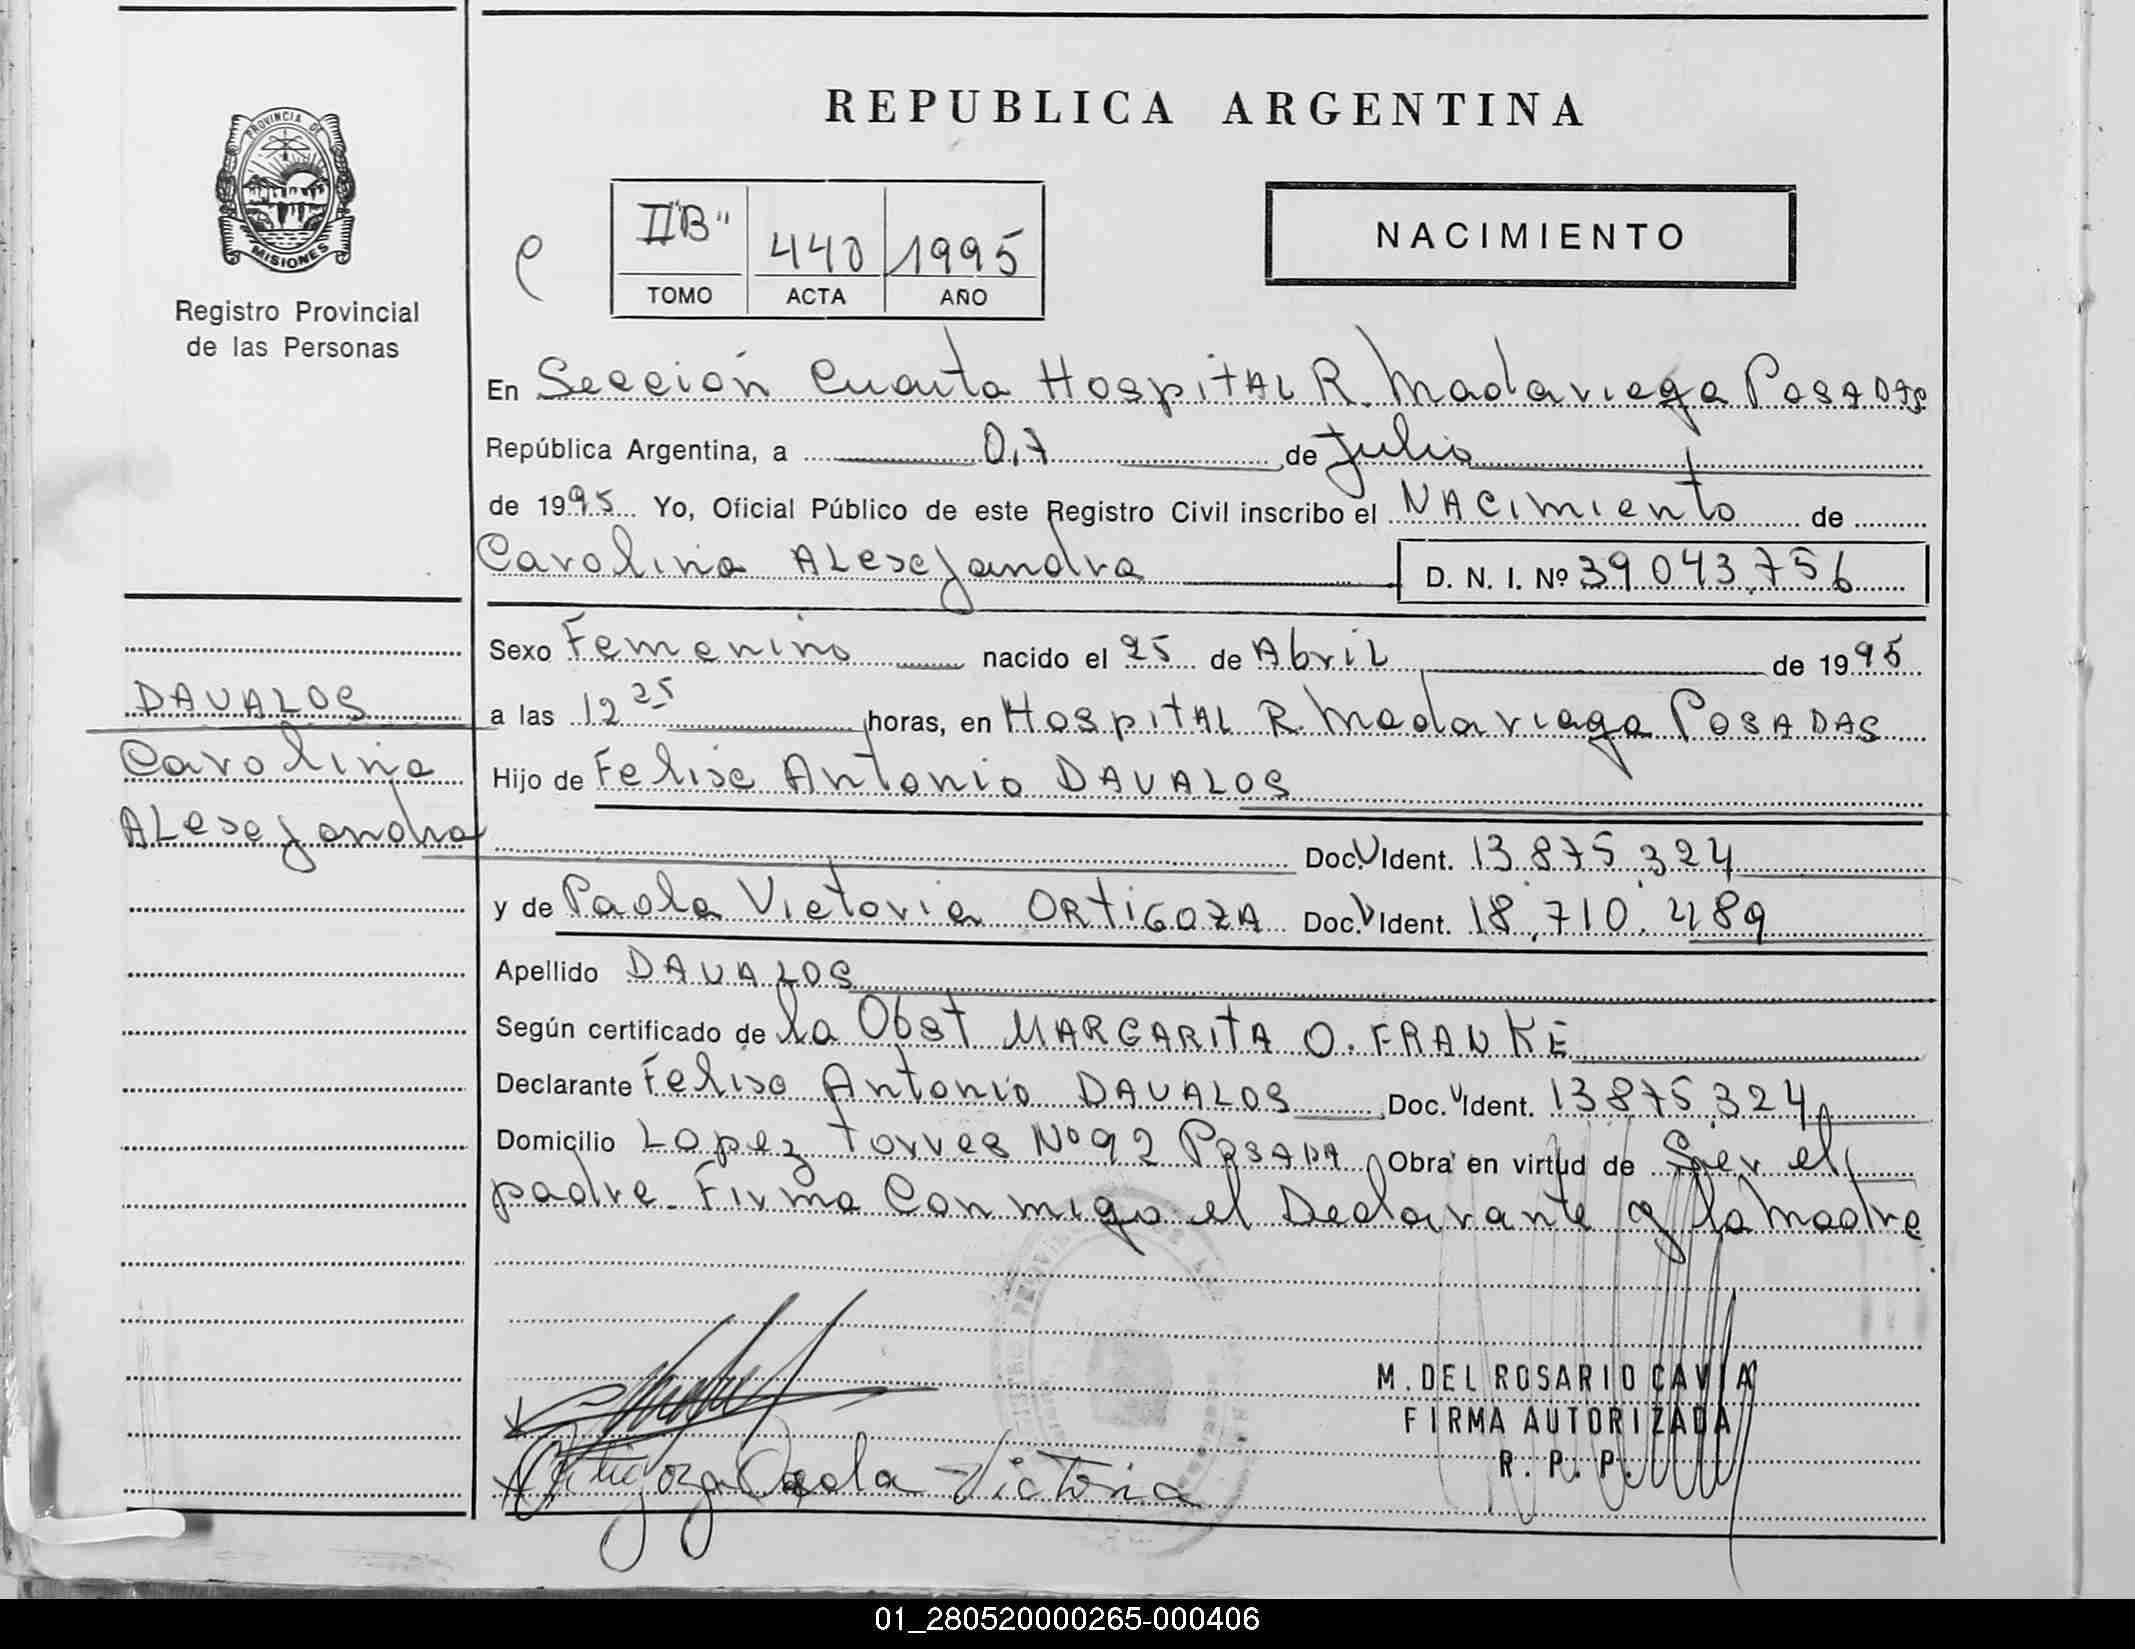 REPUBLICA ARGENTINA
PROVINCIA DE
MISIONES
Registro Provincial
de las Personas
II "B" 440 1995
TOMO ACTA AÑO
NACIMIENTO
En Sección Cuarta Hospital R. Madariaga POSADAS
República Argentina, a 07 de Julio
de 1995 Yo, Oficial Público de este Registro Civil inscribo el NACIMIENTO de
Carolina ALESEJANDRA D. N. I. Nº 39.043.756
Sexo Femenino nacido el 25 de Abril de 1995
a las 12 25 horas, en Hospital R. Madariaga POSADAS
DAVALOS
Carolina
ALESEJANDRA
Hijo de Felise Antonio DAVALOS
Doc. Ident. 13.875.324
y de Paola Victoria ORTIGOZA Doc. Ident. 18.710.489
Apellido DAVALOS
Según certificado de la Obst MARGARITA O. FRANKE
Declarante Feliso Antonio DAVALOS Doc. Ident. 13.875.324
Domicilio Lopez Torres Nº 92 POSADA Obra en virtud de Ser el
padre. Firma Conmigo el Declarante y la Madre
M. DEL ROSARIO CAVIA
FIRMA AUTORIZADA
R. P. P.
Ortigoza Paola Victoria
01_280520000265-000406